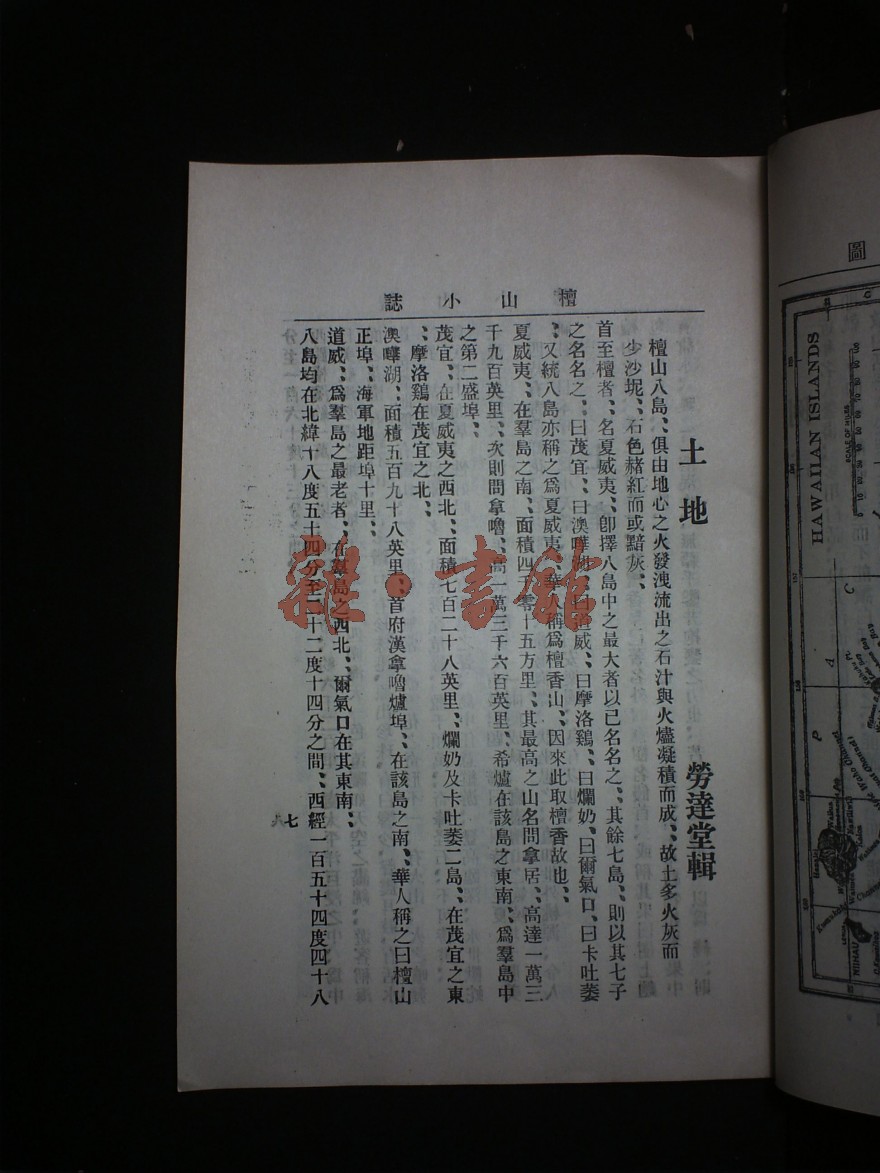 檀山小誌
土地
勞達堂輯
檀山八島、俱由地心之火發洩流出之石汁與火燼凝積而成、故土多火灰而
少沙坭、石色赭紅而或黯灰、
首至檀者、名夏威夷、卽擇八島中之最大者以已名名之、其餘七島、則以其七子
之名名之、曰茂宜、曰澳嘩湖、曰道威、曰摩洛鷄、曰爛奶、曰爾氣口、曰卡吐蒌
、又統八島亦稱之爲夏威夷、華人稱爲檀香山、因來此取檀香故也、
夏威夷、在羣島之南、面積四千零十五方里、其最高之山名問拿居、高達一萬三
千九百英里、次則問拿嚕、高一萬三千六百英里、希爐在該島之東南、爲羣島中
之第二盛埠、
茂宜、在夏威夷之西北、面積七百二十八英里、爛奶及卡吐蒌二島、在茂宜之東
、摩洛鷄在茂宜之北、
澳嘩湖、面積五百九十八英里、首府漢拿嚕爐埠、在該島之南、華人稱之曰檀山
正埠、海軍地距埠十里、
道威、爲羣島之最老者、在羣島之西北、爾氣口在其東南、
八島均在北緯十八度五十四分至二十二度十四分之間、西經一百五十四度四十八
七
圖
HAWAIIAN ISLANDS
SCALE OF MILES
NIIHAU
雜·書館